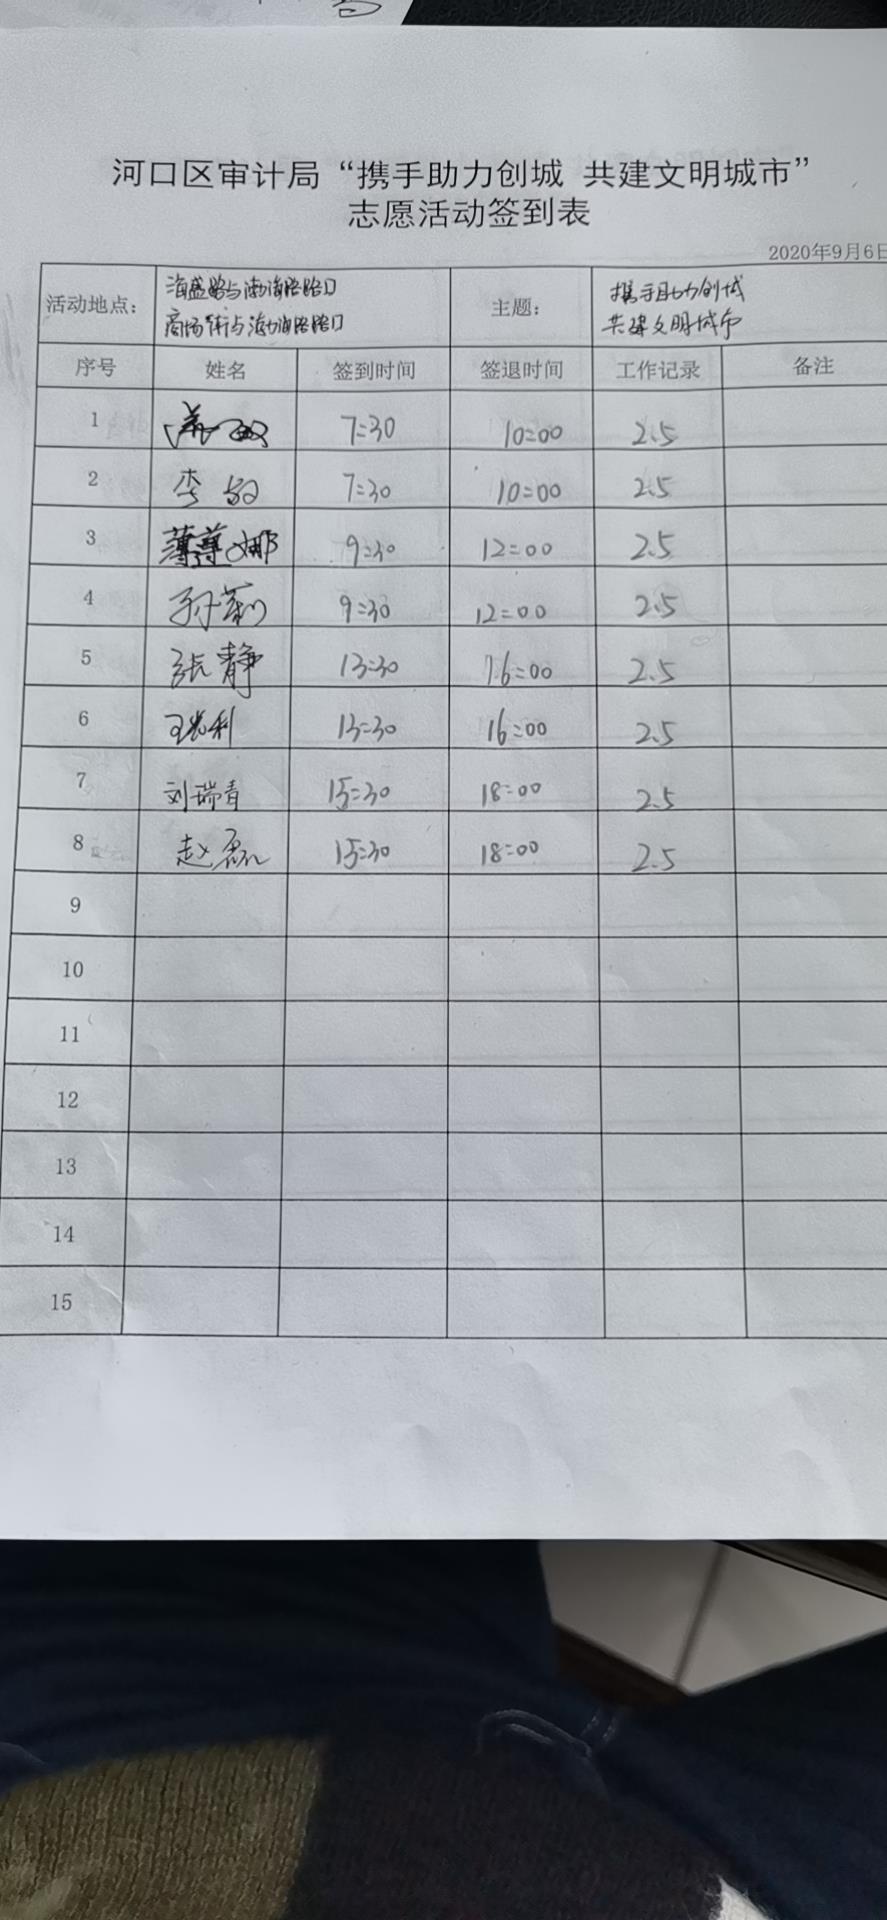 河口区审计局“携手助力创城 共建文明城市”
志愿活动签到表
2020年9月6日
活动地点： 海盛路与渤海路路口 主题： 携手助力创城
商场街与渤海路路口 共建文明城市
序号 姓名 签到时间 签退时间 工作记录 备注
1 7:30 10:00 2.5
2 李敏 7:30 10:00 2.5
3 薄 娜 9:30 12:00 2.5
4 孙莉 9:30 12:00 2.5
5 张静 13:30 16:00 2.5
6 王 利 13:30 16:00 2.5
7 刘瑞青 15:30 18:00 2.5
8 赵磊 15:30 18:00 2.5
9
10
11
12
13
14
15